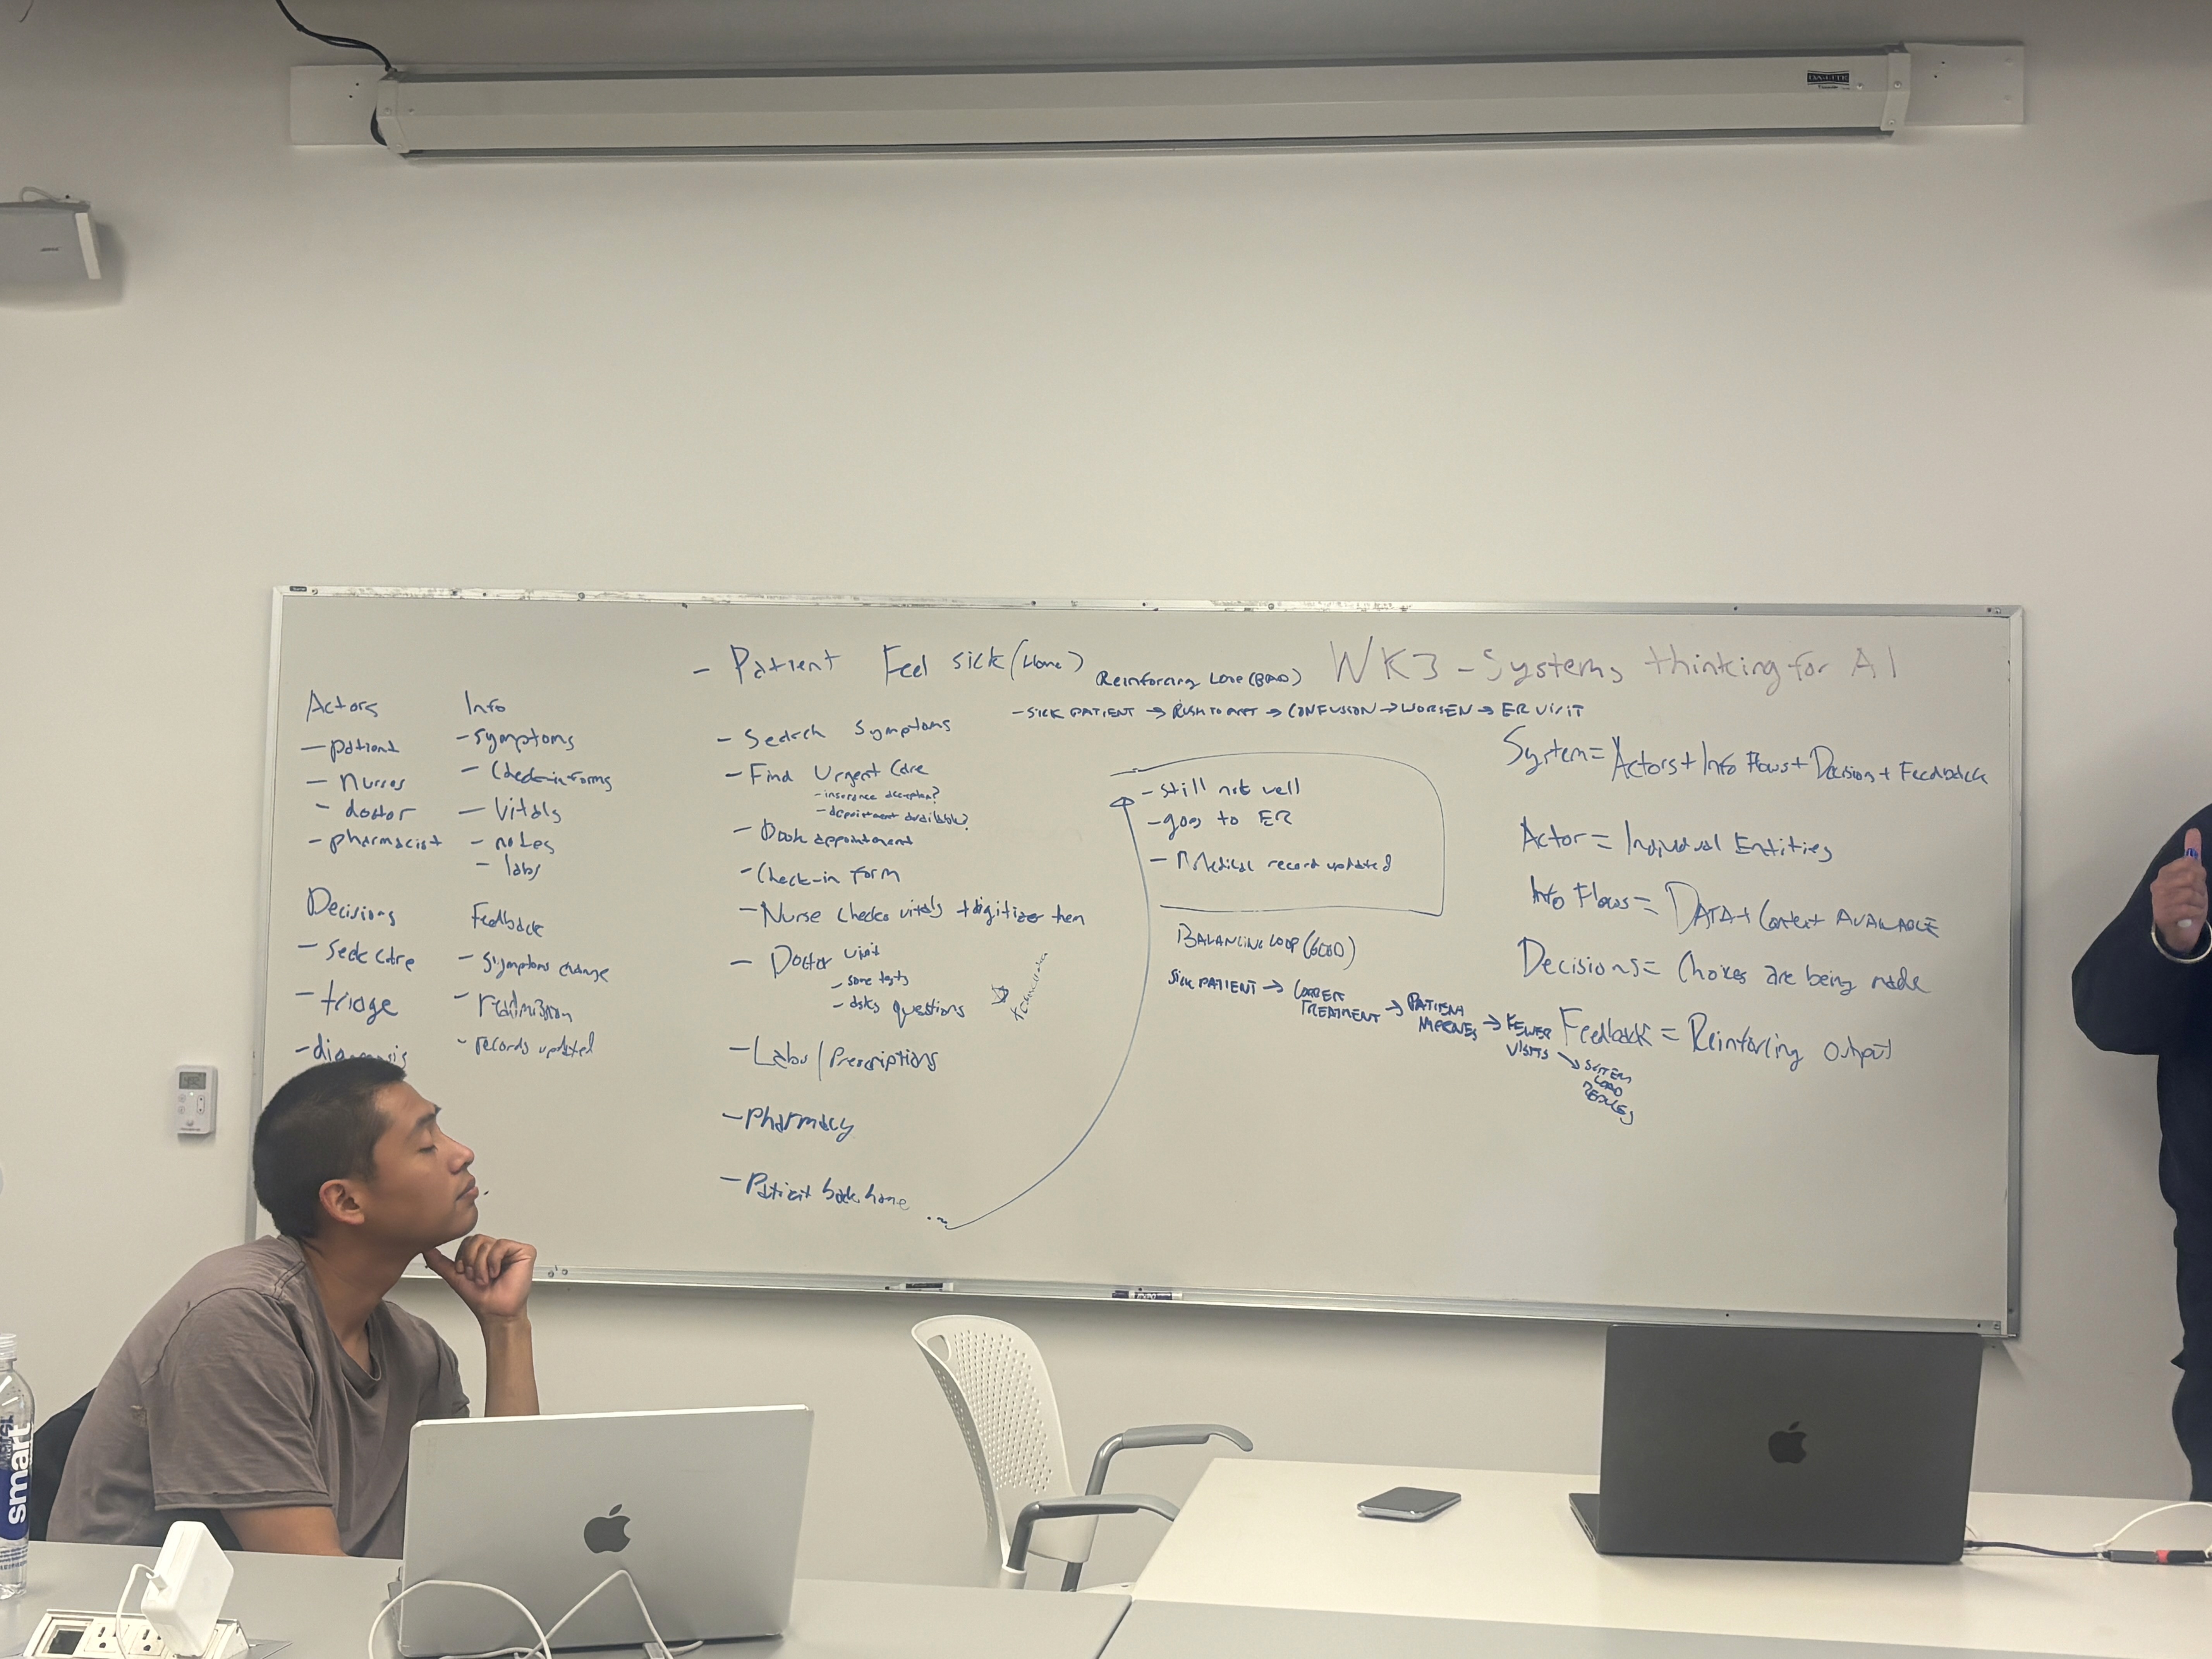 DA-LITE
BOSE
WK3 - Systems thinking for AI
Actors
- patient
- nurses
- doctor
- pharmacist
Info
- symptoms
- Check-in forms
- Vitals
- notes
- labs
Decisions
- seek care
- triage
- diagnosis
Feedback
- symptoms change
- readmission
- records updated
- Patient Feel sick (Home)
- Search symptoms
- Find Urgent Care
- insurance accepted?
- appointment available?
- Book appointment
- Check-in form
- Nurse checks vitals + digitizes them
- Doctor visit
- some tests
- asks questions
- Labs / Prescriptions
- Pharmacy
- Patient back home ...
Reinforcing Loop (BAD)
- SICK PATIENT → RUSH TO → CONFUSION → WORSEN → ER VISIT
- still not well
- goes to ER
- Medical record updated
BALANCING LOOP (GOOD)
SICK PATIENT → CORRECT TREATMENT → PATIENT → FEWER VISITS → SYSTEM LOAD REDUCES
System = Actors + Info Flows + Decisions + Feedback
Actor = Individual Entities
Info Flows = DATA + Context AVAILABLE
Decisions = Choices are being made
Feedback = Reinforcing output
EXPO
smart